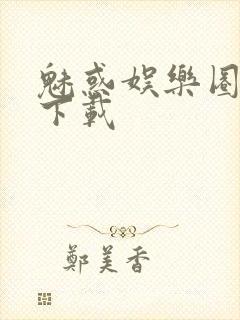 魅惑娛樂圈
下載
鄭美香